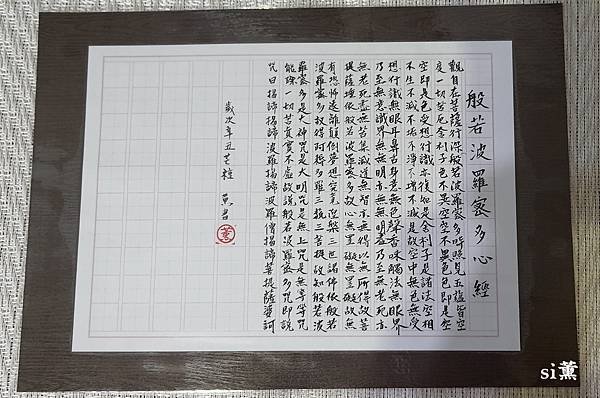 般若波羅蜜多心經
觀自在菩薩行深般若波羅蜜多時照見五蘊皆空
度一切苦厄舍利子色不異空空不異色色即是空
空即是色受想行識亦復如是舍利子是諸法空相
不生不滅不垢不淨不增不減是故空中無色無受
想行識無眼耳鼻舌身意無色聲香味觸法無眼界
乃至無意識界無無明亦無無明盡乃至無老死亦
無老死盡無苦集滅道無智亦無得以無所得故菩
提薩埵依般若波羅蜜多故心無罣礙無罣礙故無
有恐怖遠離顛倒夢想究竟涅槃三世諸佛依般若
波羅蜜多故得阿耨多羅三藐三菩提故知般若波
羅蜜多是大神咒是大明咒是無上咒是無等等咒
能除一切苦真實不虛故說般若波羅蜜多咒即說
咒曰揭諦揭諦波羅揭諦波羅僧揭諦菩提薩婆訶
歲次辛丑芒種
薰書
薰
si薰